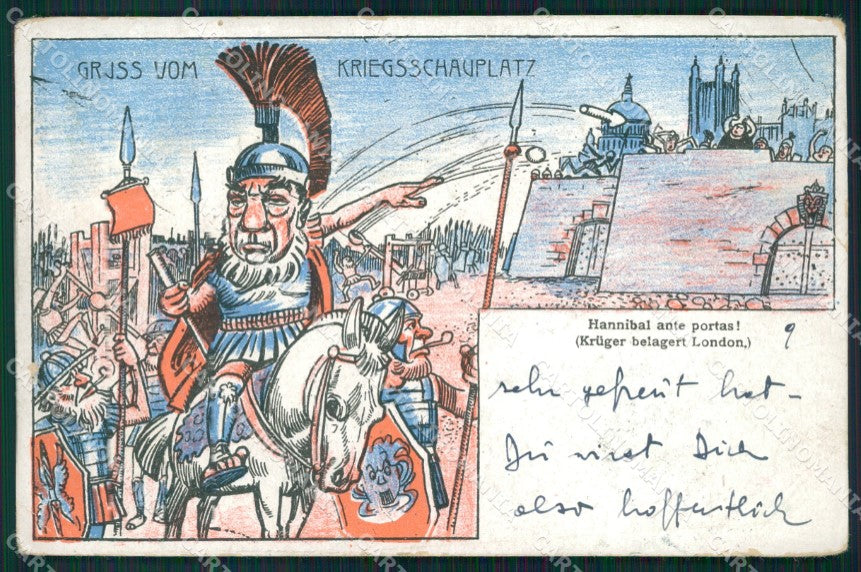 GRUSS VOM KRIEGSSCHAUPLATZ
Hannibal ante portas!
(Krüger belagert London.)
9
sehr gefreut hat –
Du wirst Dich
also hoffentlich
CARTOLINOMANIA